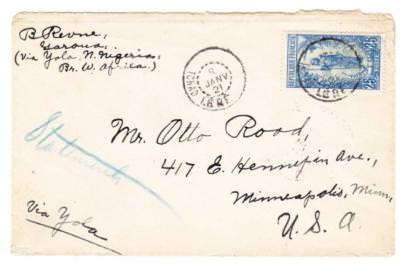 B. Revne,
Garoua,
(Via Yola, N. Nigeria,
Br. W. Africa.)
TCHAD
9
JANV
21
LÉRÉ
RÉPUBLIQUE FRANÇAISE
25
Statements
Mr. Otto Rood,
417 E. Hennepin Ave.,
Minneapolis, Minn,
U. S. A.
Via Yola